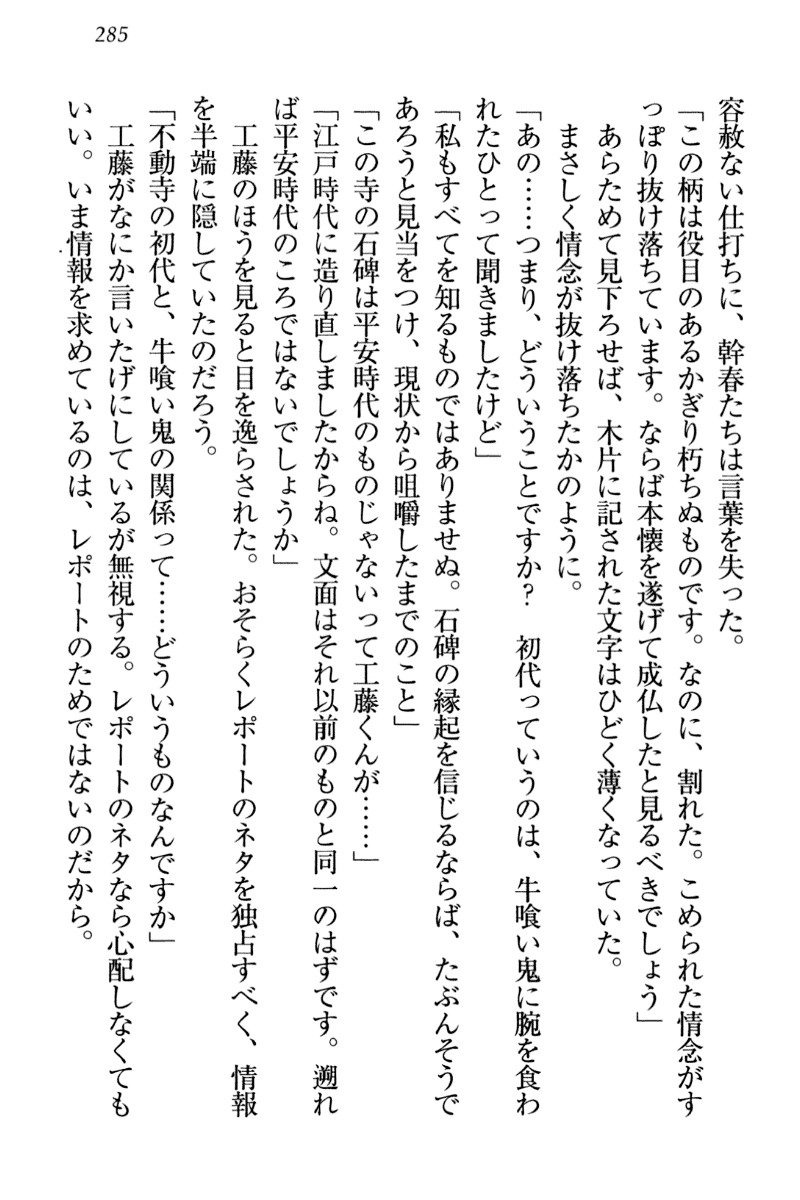 285
容赦ない仕打ちに、幹春たちは言葉を失った。
「この柄は役目のあるかぎり朽ちぬものです。なのに、割れた。こめられた情念がす
っぽり抜け落ちています。ならば本懐を遂げて成仏したと見るべきでしょう」
あらためて見下ろせば、木片に記された文字はひどく薄くなっていた。
まさしく情念が抜け落ちたかのように。
「あの……つまり、どういうことですか?　初代っていうのは、牛喰い鬼に腕を食わ
れたひとって聞きましたけど」
「私もすべてを知るものではありませぬ。石碑の縁起を信じるならば、たぶんそうで
あろうと見当をつけ、現状から咀嚼したまでのこと」
「この寺の石碑は平安時代のものじゃないって工藤くんが……」
「江戸時代に造り直しましたからね。文面はそれ以前のものと同一のはずです。遡れ
ば平安時代のころではないでしょうか」
工藤のほうを見ると目を逸らされた。おそらくレポートのネタを独占すべく、情報
を半端に隠していたのだろう。
「不動寺の初代と、牛喰い鬼の関係って……どういうものなんですか」
工藤がなにか言いたげにしているが無視する。レポートのネタなら心配しなくても
いい。いま情報を求めているのは、レポートのためではないのだから。